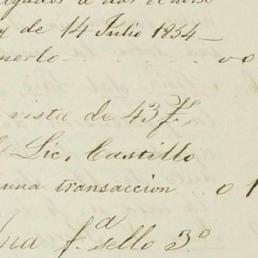 y de 14 Julio 1854—
nerlo . . . . oo
vista de 43 f,
Lic, Castillo
una transaccion . . o 1
una f.ª sello 3.º